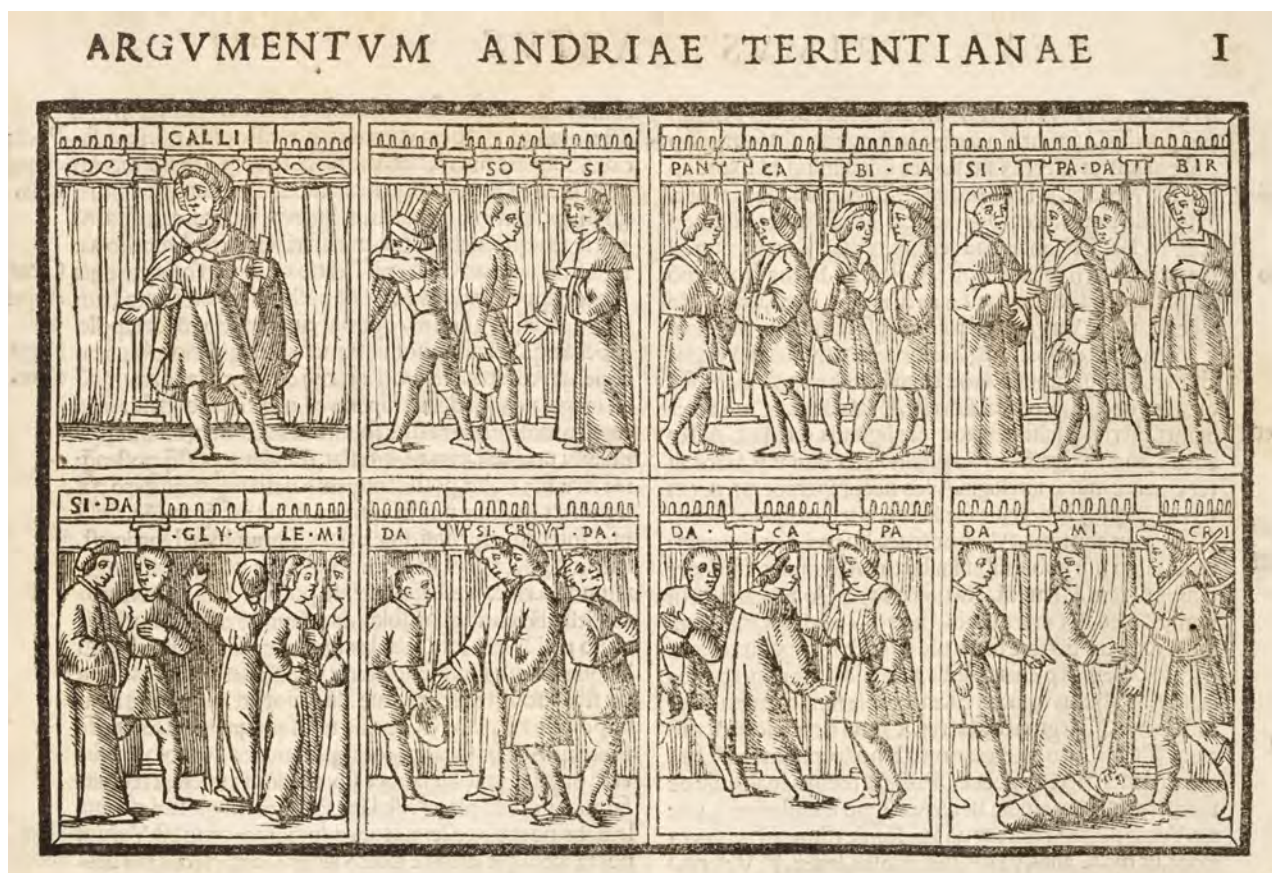 ARGVMENTVM ANDRIAE TERENTIANAE I
CALLI
SO SI
PAN CA BI · CA
SI · PA · DA BIR
SI · DA
· GLY · LE · MI
DA SI · CR DA ·
DA · CA PA
DA MI CRI